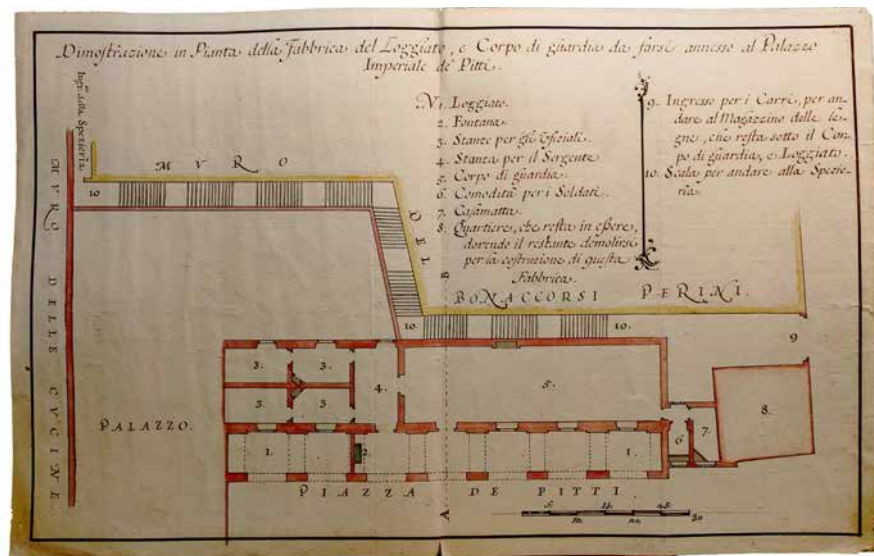 Dimostrazione in Pianta della Fabbrica del Loggiato, e Corpo di guardia da farsi annesso al Palazzo
Imperiale de Pitti.
N.1. Loggiato.
2. Fontana.
3. Stanze per gli Ufiziali.
4. Stanza per il Sergente
5. Corpo di guardia.
6. Comodità per i Soldati.
7. Casamatta.
8. Quartiere, che resta in essere,
dovendo il restante demolirsi
per la costruzione di questa
Fabbrica.
9. Ingresso per i Carri, per an-
dare al Magazzino delle le-
gne, che resta sotto il Cor-
po di guardia, e Loggiato.
10. Scala per andare alla Spezie-
ria.
della Spezieria
MURO DELLE CUCINE
MURO
DEL
BONACCORSI PERINI.
10.
10.
10.
9
3.
3.
3.
3.
4.
5.
6
7.
8.
PALAZZO.
1.
2.
1.
PIAZZA DE PITTI
B
A
5.
10.
15.
20.
25.
30